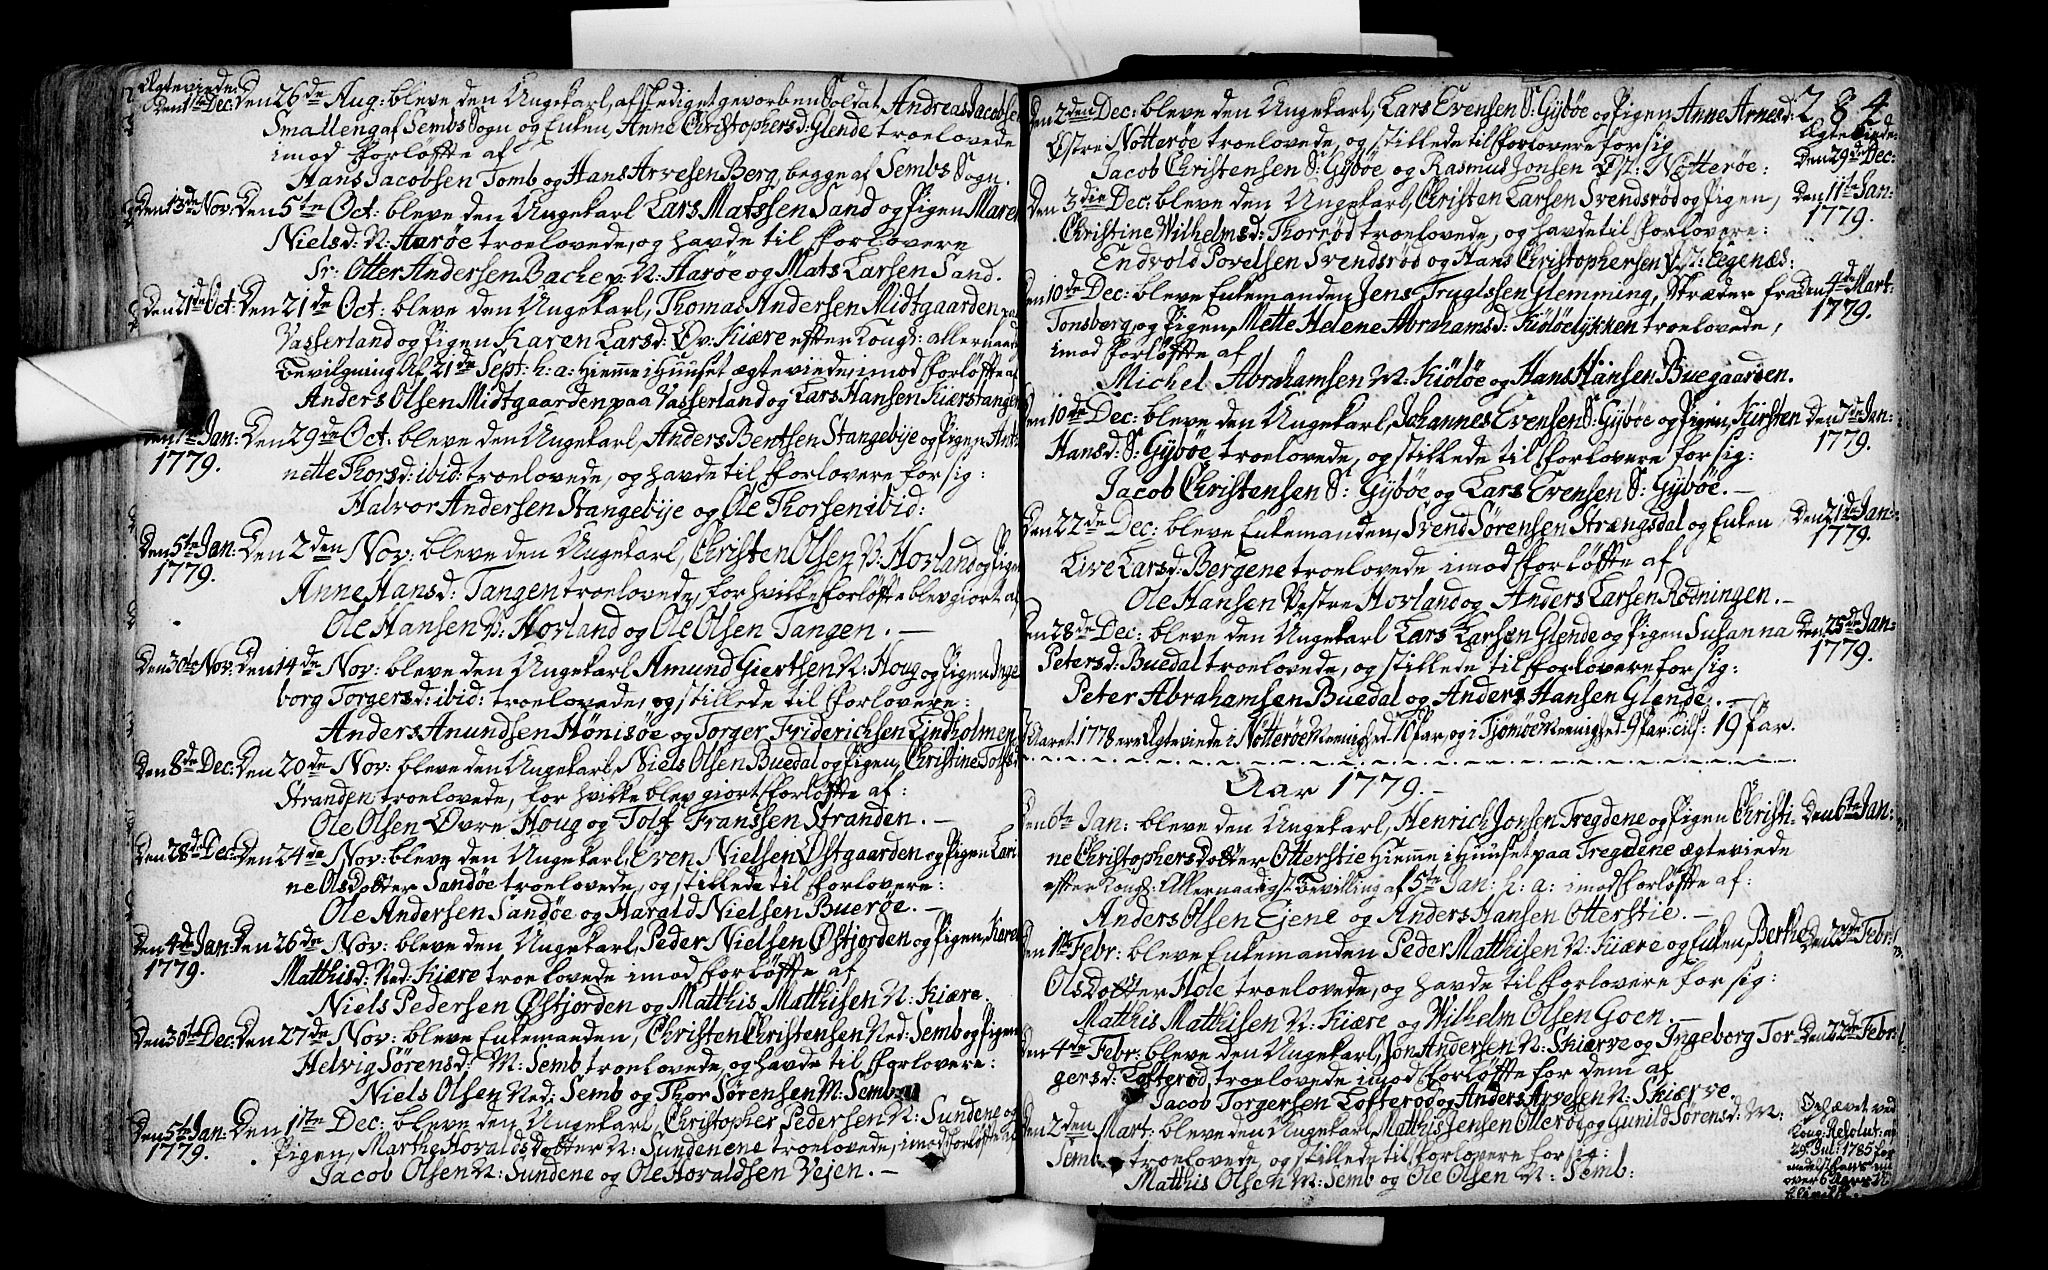 Ægteviede:
Den 1te Dec: Den 26de Aug: bleve den Ungekarl, afskediget gevorben Soldat, Andreas Jacobsen
Smalleng af Sembs Sogn og Enken, Anne Christophersd: Glende troelovede
imod Forløffte af
Hans Jacobsen Tomb og Hans Arvesen Berg, begge af Sembs Sogn.
Den 13de Nov: Den 5te Oct: bleve den Ungekarl Lars Matssen Sand og Pigen Maren
Nielsd: N: Aarøe troelovede, og havde til Forlovere
Sr: Otter Andersen Bache p: N: Aarøe og Mats Larsen Sand.
Den 21de Oct: Den 21de Oct: bleve den Ungekarl, Thomas Andersen Midtgaarden paa
Vasserland og Pigen Karen Larsd: Øv: Kiære effter Kongl: allernaad
Bevilgning af 21de Sept: h: a: Hiemme i Huuset ægteviede, imod Forløffte af
Anders Olsen Midtgaarden paa Vasserland og Lars Hansen Kierstangen
Den 7de Jan: Den 29de Oct: bleve den Ungekarl, Anders Bentsen Stangebye og Pigen Anto
1779. nette Thorsd: ibid: troelovede, og havde til Forlovere for sig:
Halvor Andersen Stangebye og Ole Thorsen ibid:
Den 5te Jan: Den 2den Nov: bleve den Ungekarl, Christen Olsen V: Hovland og Pigen
1779. Anne Hansd: Tangen troelovede, for hvilke Forløffte blev giort af
Ole Hansen V: Hovland og Ole Olsen Tangen. —
Den 30te Nov: Den 14de Nov: bleve den Ungekarl Amund Giertsen N: Houg og Pigen Inge
borg Torgersd: ibid: troelovede, og stillede til Forlovere:
Anders Anundsen Hønisøe og Torger Friderichsen Lindholmen
Den 8de Dec: Den 20de Nov: bleve den Ungekarl, Niels Olsen Buedal og Pigen, Christine Tolfsd:
Stranden troelovede, for hvilke blev giort Forløffte af:
Ole Olsen Øvre Houg og Tolf Franssen Stranden. —
Den 28de Dec: Den 24de Nov: bleve den Ungekarl, Even Nielsen Østgaarden og Pigen Kari
ne Olsdotter Sandøe troelovede, og stillede til Forlovere:
Ole Andersen Sandøe og Harald Nielsen Buerøe. —
Den 4de Jan: Den 26de Nov: bleve den Ungekarl, Peder Nielsen Østjorden og Pigen, Karen
1779. Matthisd: Ned: Kiære troelovede imod Forløffte af
Niels Pedersen Østjorden og Matthis Matthisen N: Kiære.
Den 30te Dec: Den 27de Nov: bleve Enkemanden, Christen Christensen Ned: Semb og Pigen
Helvig Sørensd: M: Semb troelovede, og havde til Forlovere:
Niels Olsen Ned: Semb og Thor Sørensen M: Semb
Den 5te Jan: Den 1ste Dec: bleve den Ungekarl, Christopher Pedersen N: Sundene og
1779. Pigen, Marthe Hovaldsdotter N: Sundenene troelovede, imod Forløffte af
Jacob Olsen N: Sundene og Ole Hovaldsen Vejen. —
284
Den 2den Dec: bleve den Ungekarl, Lars Evensen S: Gybøe og Pigen Anne Arnesd:
Ægteviede:
Østre Nøtterøe troelovede, og stillede til Forlovere for sig
Den 29de Dec:
Jacob Christensen S: Gybøe og Rasmus Jonsen Øst: Nøtterøe:
Den 3die Dec: bleve den Ungekarl, Christen Larsen Svendsrød og Pigen, Den 11te Jan:
Christine Wilhelmsd: Thorrød troelovede, og havde til Forlovere: 1779.
Endvold Povelsen Svendsrød og Hans Christophersen Vest: Eegenæs:
Den 10de Dec: bleve Enkemanden Jens Truglssen Glemming, Skræder fra Den 4de Mart:
Tonsberg, og Pigen, Mette Helene Abrahamsd: Kiöløelykken troelovede, 1779.
imod Forløffte af
Michel Abrahamsen N: Kiöløe og Hans Hansen Buegaarden.
Den 10de Dec: bleve den Ungekarl, Johannes Evensen S: Gybøe og Pigen, Kirsten Den 7de Jan:
Hansd: S: Gybøe troelovede, og stillede til Forlovere for sig: 1779.
Jacob Christensen S: Gybøe og Lars Evensen S: Gybøe. —
Den 22de Dec: bleve Enkemanden, Svend Sørensen Strængsdal og Enken Den 21de Jan:
Live Larsd: Bergene troelovede imod Forløffte af 1779.
Ole Hansen Vestre Hovland og Anders Larsen Rødningen. —
Den 28de Dec: bleve den Ungekarl Lars Larsen Glende og Pigen Susanna Den 25de Jan:
Petersd: Buedal troelovede, og stillede til Forlovere for sig: 1779.
Peter Abrahamsen Buedal og Anders Hansen Glende. —
I Aaret 1778 ere Ægteviede i Nøtterøe Meenighed 10 Par, og i Tjømøe Meenighed 9 Par: tils: 19 Par.
Aar 1779. —
Den 6te Jan: bleve den Ungekarl, Henrich Jonsen Tregdene og Pigen Christi- Den 6te Jan:
ne Christophersdotter Otterstie Hiemme i Huuset paa Tregdene ægteviede
effter Kongl: Allernaadigst Bevilling af 5te Jan: h: a: imod Forløffte af:
Anders Olsen Ejene og Anders Hansen Otterstie. —
Den 1ste Febr: bleve Enkemanden Peder Matthisen N: Kiære og Enken, Berthe Den 23de Febr:
Olsdotter Hole troelovede, og havde til Forlovere for sig:
Matthis Matthisen N: Kiære og Wilhelm Olsen Goen. —
Den 4de Febr: bleve den Ungekarl, Jon Andersen N: Skiærve og Ingeborg Tor- Den 22de Febr:
gersd: Lofterød troelovede imod Forløffte for dem af
Jacob Torgersen Lofterød og Anders Arvesen N: Skiærve.
Den 2den Mart: bleve den Ungekarl, Matthis Jensen Otterøe og Gunild Sørensd: M:
Semb troelovede, og stillede til Forlovere for sig:
Matthis Olsen M: Semb og Ole Olsen N: Semb:
Ophævet ved
Kong: Resolut: af
29 Jul: 1785 for
medelst hans
over 6 Aars